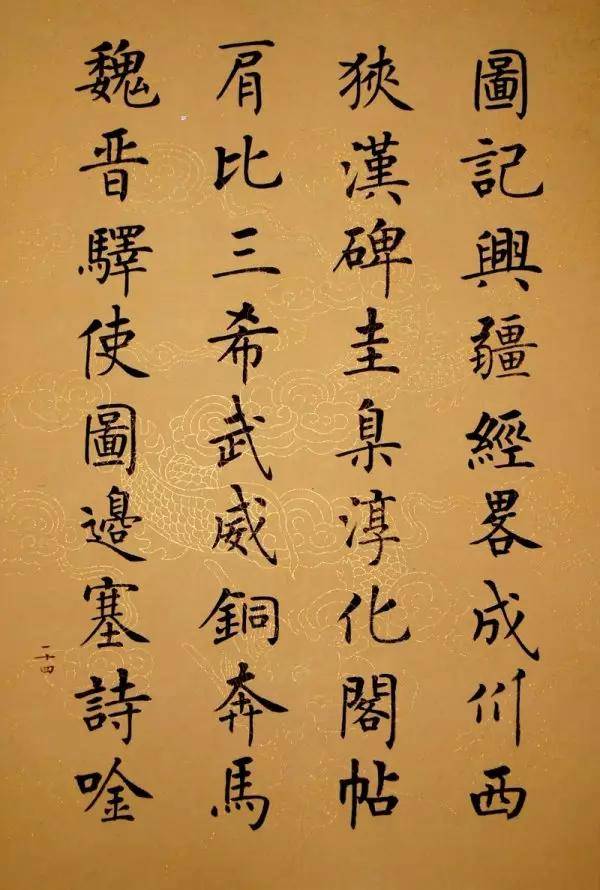 圖記興疆經畧成州西
狹漢碑圭臬淳化閣帖
肩比三希武威銅奔馬
魏晋驛使圖邊塞詩唫
二十四